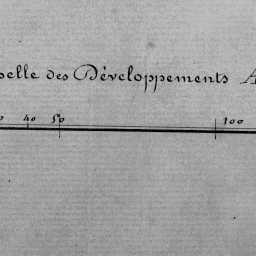 des Développements
40 50 100